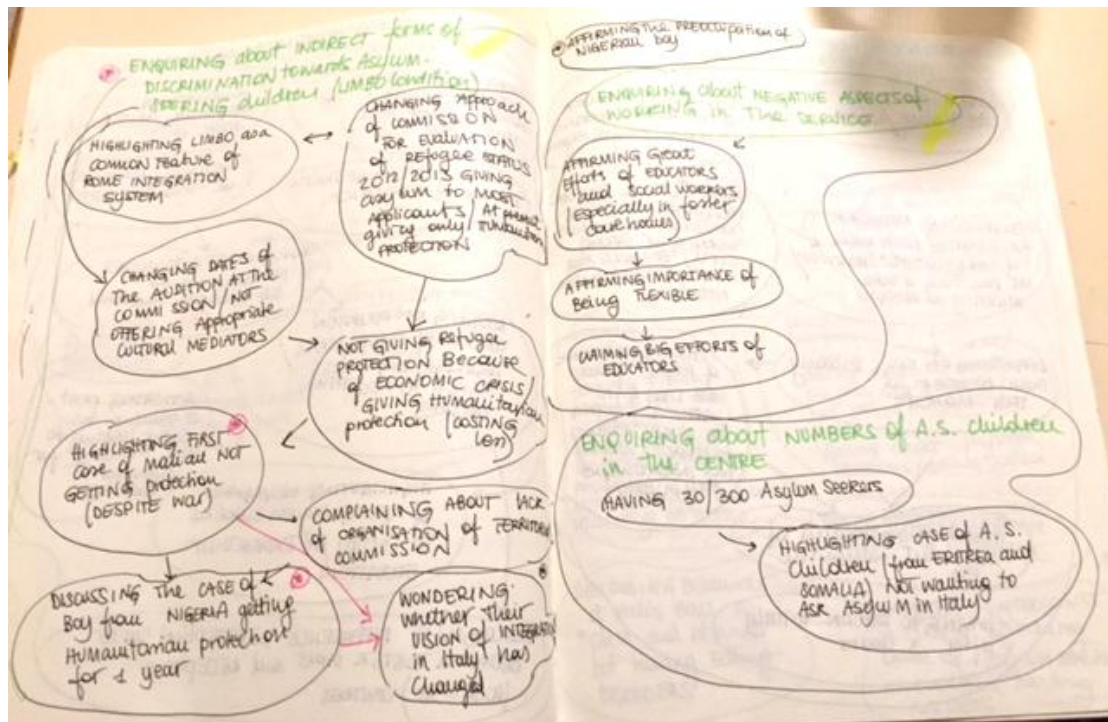 ENQUIRING about INDIRECT forms of
DISCRIMINATION towards Asylum-
SEEKING children (LIMBO condition)
HIGHLIGHTING LIMBO as a
COMMON FEATURE of
ROME INTEGRATION
SYSTEM
CHANGING Approach
of COMMISSION
FOR EVALUATION
of REFUGEE STATUS
2012/2013 GIVING
asylum to MOST
Applicants / At present
giving only humanitarian
PROTECTION
CHANGING DATES of
The AUDITION AT THE
COMMISSION / NOT
OFFERING Appropriate
CULTURAL MEDIATORS
NOT GIVING Refugee
PROTECTION Because
of ECONOMIC CRISIS/
GIVING HUMANITARIAN
protection (COSTING
less)
HIGHLIGHTING FIRST
case of Malian NOT
GETTING protection
(DESPITE WAR)
COMPLAINING ABOUT LACK
of ORGANISATION of TERRITORIAL
COMMISSION
DISCUSSING THE CASE of
Boy from NIGERIA getting
HUMANITARIAN protection
for 1 year
WONDERING
whether Their
VISION of INTEGRATION
in Italy has
Changed
AFFIRMING THE PREOCCUPATION of
NIGERIAN boy
ENQUIRING about NEGATIVE ASPECTS of
WORKING in The SERVICE
AFFIRMING Great
Efforts of EDUCATORS
and social workers
(especially in foster
care homes)
AFFIRMING IMPORTANCE of
Being FLEXIBLE
CLAIMING BIG EFFORTS of
EDUCATORS
ENQUIRING about NUMBERS of A.S. children
in The CENTRE
HAVING 30/300 Asylum Seekers
HIGHLIGHTING CASE of A.S.
Children (from ERITREA and
SOMALIA) NOT wanting to
Ask Asylum in Italy